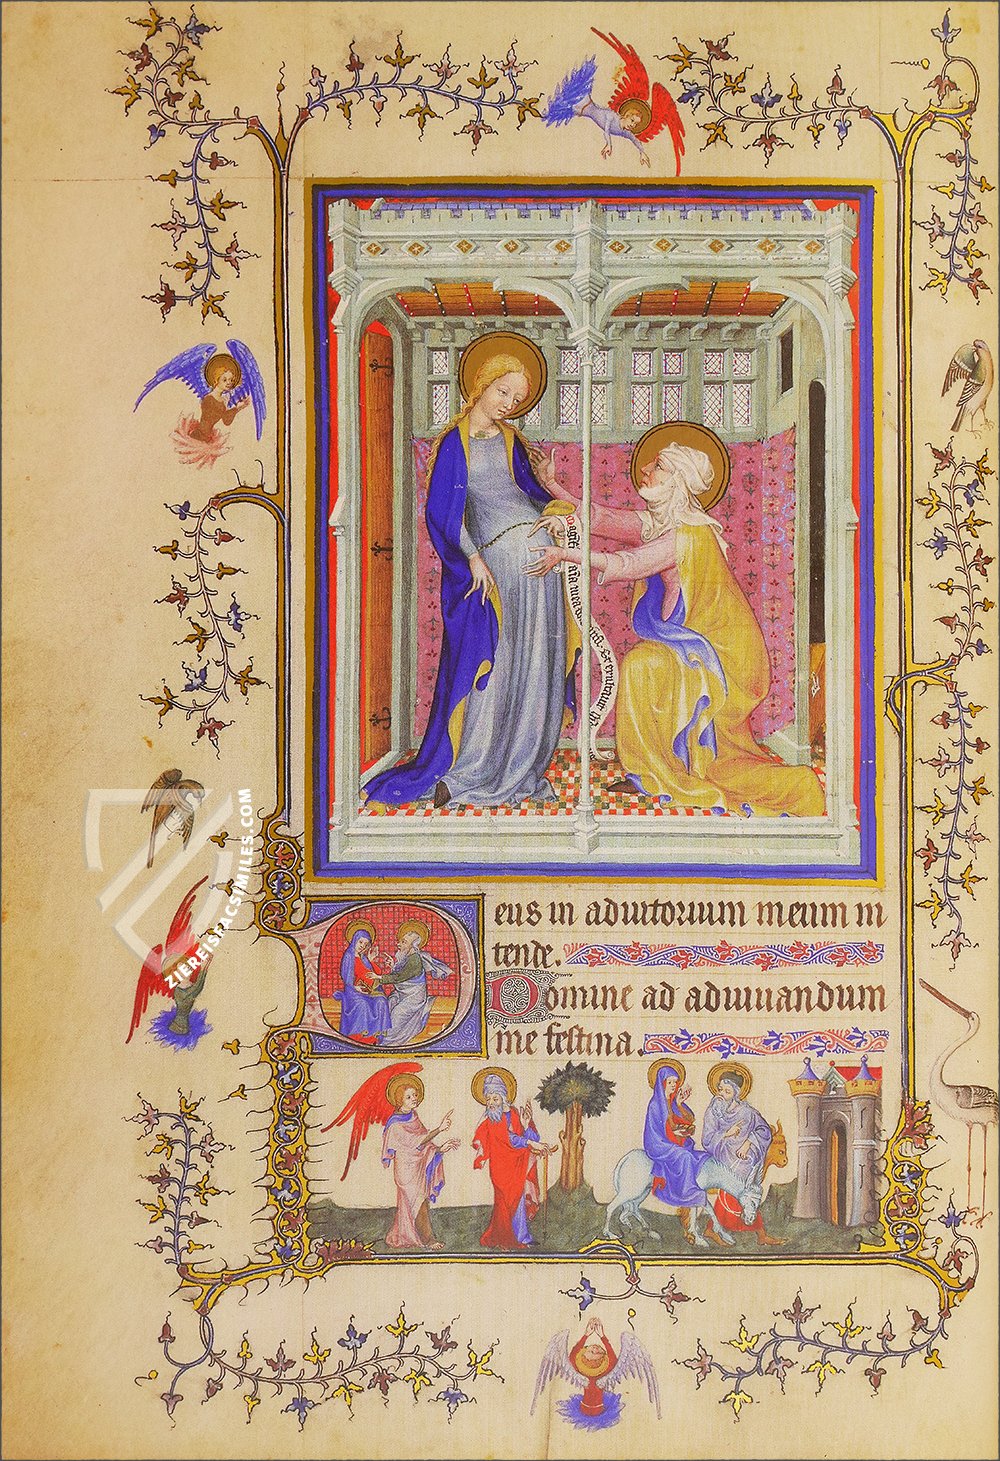 mea
et exultauit
Deus in adiutorium meum in
tende.
Domine ad adiuuandum
me festina.
ZIEREISFACSIMILES.COM